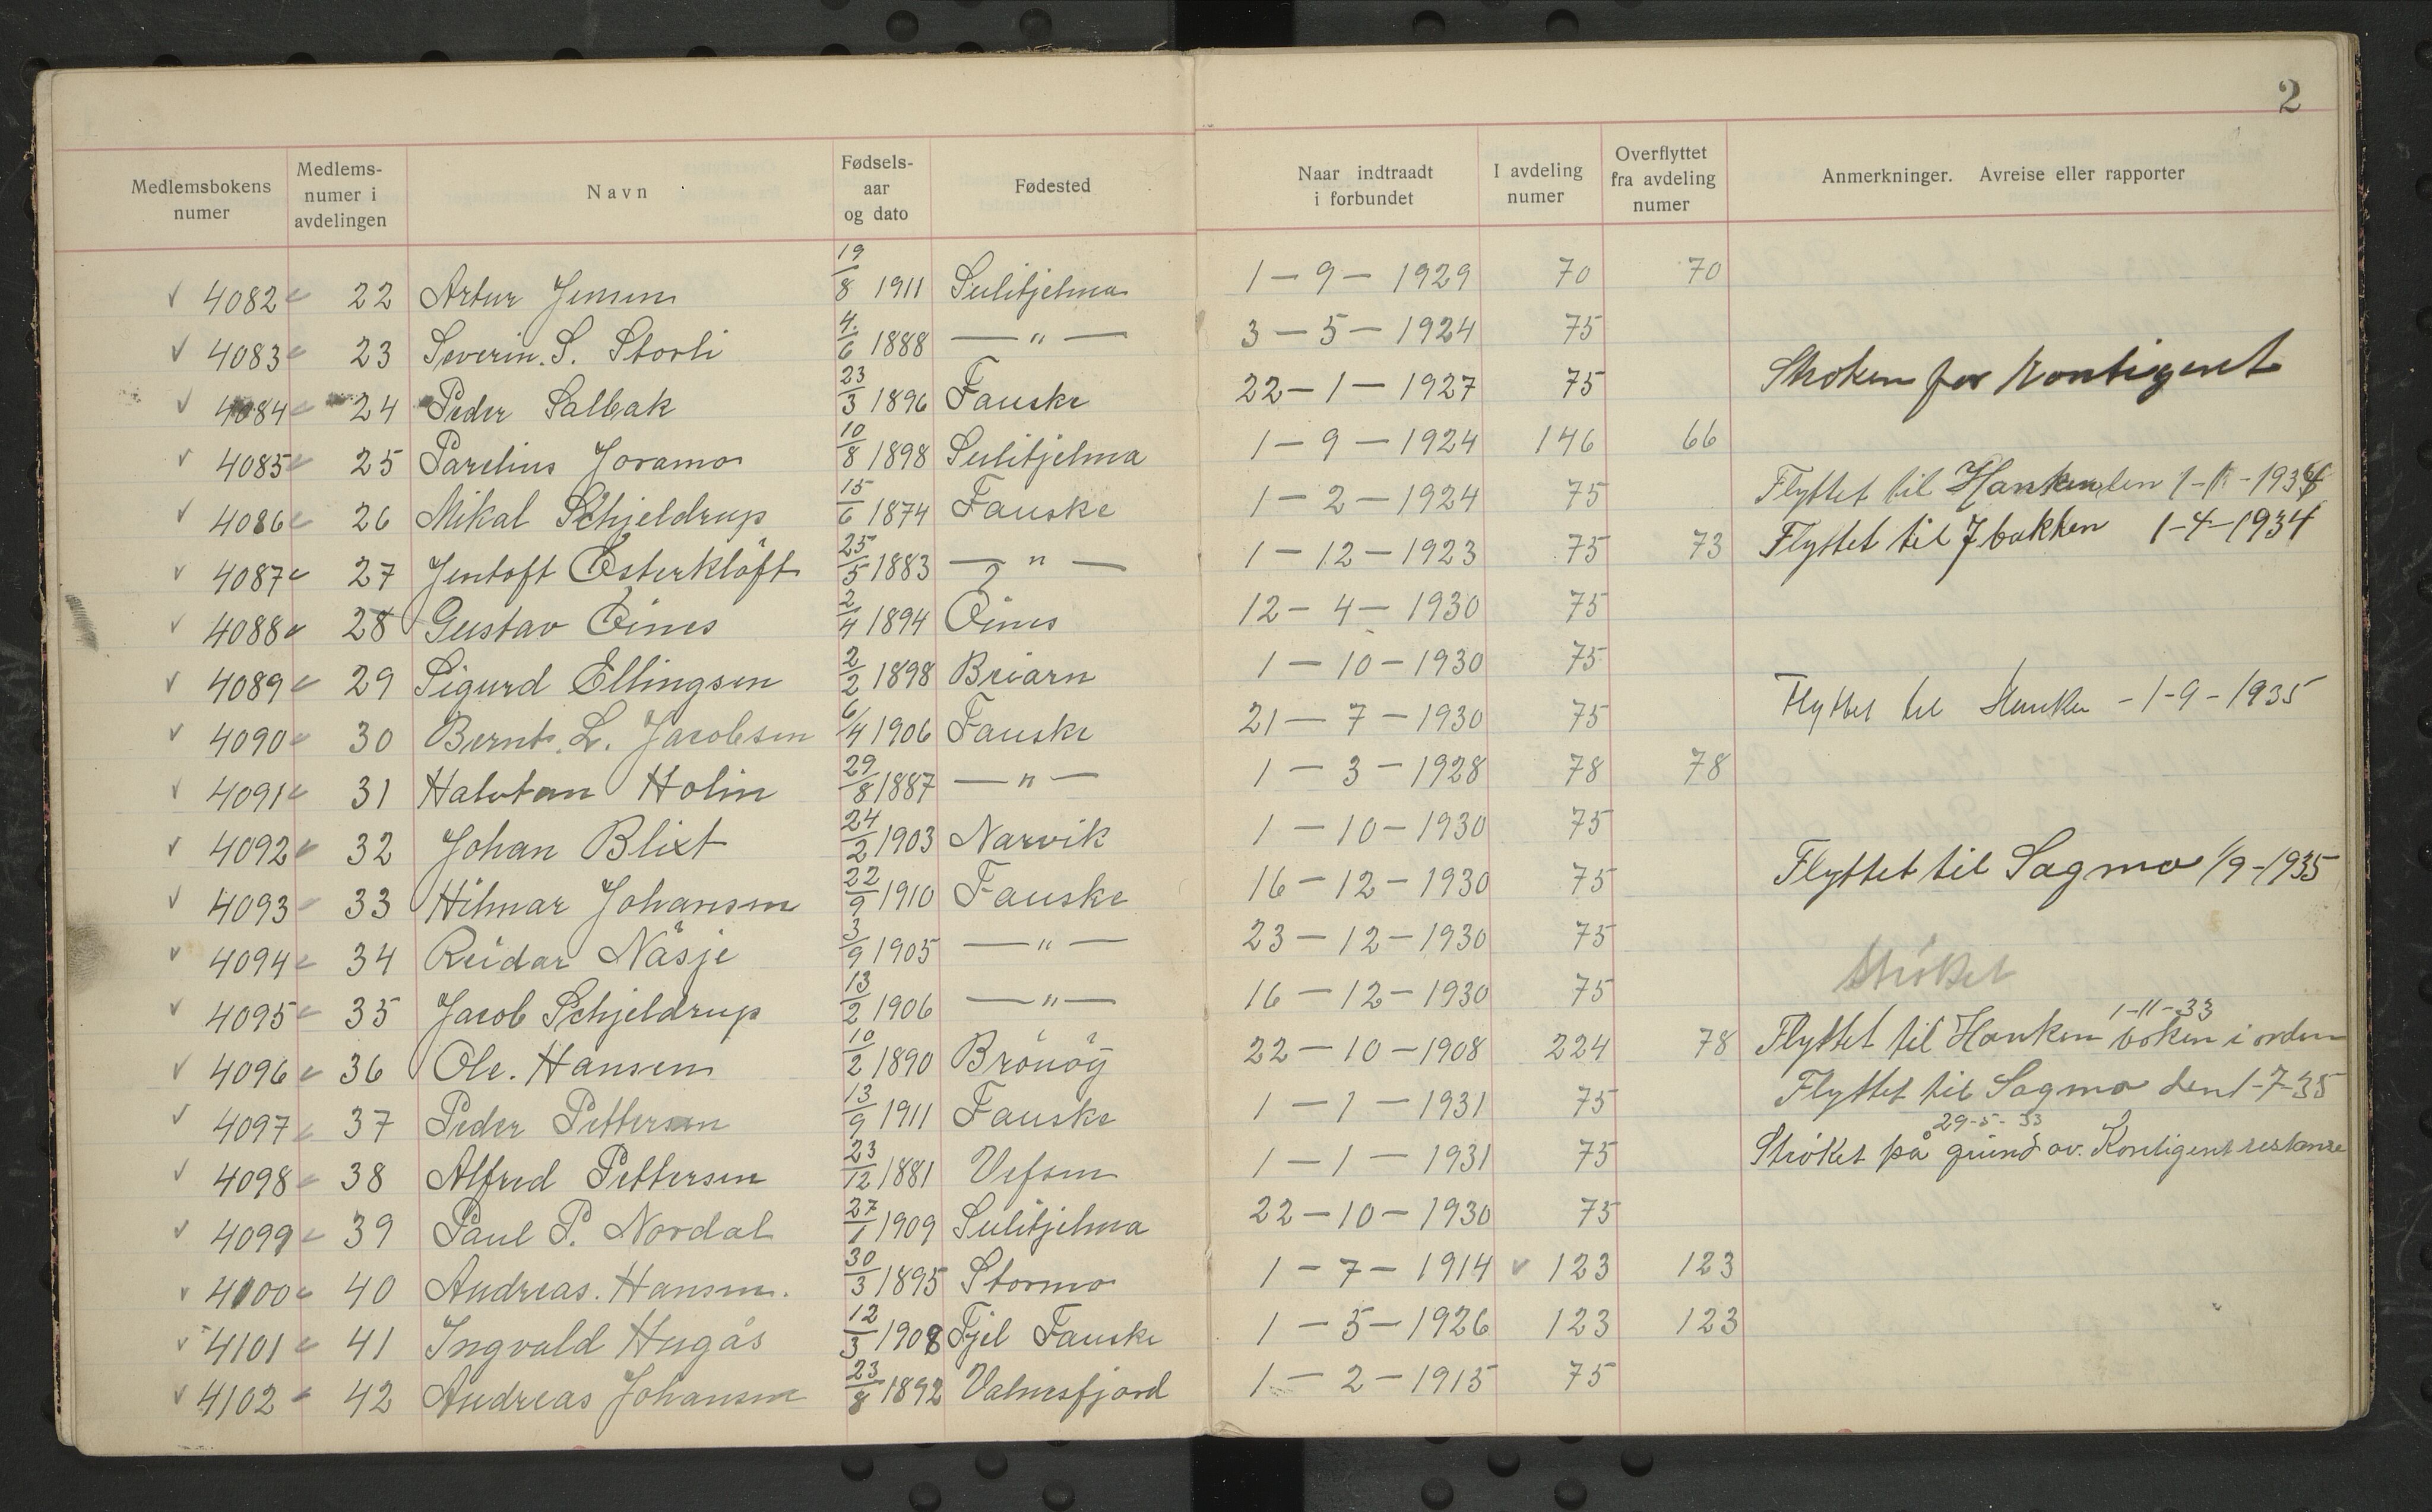 2
Medlemsbokens numer | Medlems-numer i avdelingen | Navn | Fødsels-aar og dato | Fødested | Naar indtraadt i forbundet | I avdeling numer | Overflyttet fra avdeling numer | Anmerkninger. Avreise eller rapporter
4082 22 Artur Jensen 19/8 1911 Sulitjelma 1-9-1929 70 70
4083 23 Severin. S. Storli 4/6 1888 —"— 3-5-1924 75
4084 24 Peder Salbak 23/3 1896 Fauske 22-1-1927 75 Stroken for Kontigent
4085 25 Parelius Joramo 10/8 1898 Sulitjelma 1-9-1924 146 66
4086 26 Mikal Schjeldrup 15/6 1874 Fauske 1-2-1924 75 Flyttet til Hanken den
4087 27 Jentoft Österklöft 25/5 1883 —"— 1-12-1923 75 73 Flyttet til Jbakken 1-4-1934
4088 28 Gustav Öines 2/4 1894 Öines 12-4-1930 75
4089 29 Sigurd Ellingsen 2/2 1898 Beiarn 1-10-1930 75
4090 30 Bernt. L. Jacobsen 6/4 1906 Fauske 21-7-1930 75 Flyttet til Hanken -1-9-1935
4091 31 Halvtan Holm 29/8 1887 —"— 1-3-1928 78 78
4092 32 Johan Blixt 24/2 1903 Narvik 1-10-1930 75
4093 33 Hilmar Johansen 22/9 1910 Fauske 16-12-1930 75 Flyttet til Sagmo 1/9-1935
4094 34 Reidar Näsje 3/9 1905 —"— 23-12-1930 75
4095 35 Jacob Schjeldrup 13/2 1906 —"— 16-12-1930 75 Ströket
4096 36 Ole. Hansen 10/2 1890 Brönöy 22-10-1908 224 78 Flyttet til Hanken 1-11-33 boken i orden
4097 37 Peder Pettersen 13/9 1911 Fauske 1-1-1931 75 Flyttet til Sagmo den 1-7-35
4098 38 Alfred Pettersen 23/12 1881 Vefsen 1-1-1931 75 Ströket på grund av. Kontigent restanse 29-5-33
4099 39 Paul P. Nordal 27/1 1909 Sulitjelma 22-10-1930 75
4100 40 Andreas. Hansen. 30/3 1895 Stormo 1-7-1914 123 123
4101 41 Ingvald Hugås 12/3 1908 Fjel Fauske 1-5-1926 123 123
4102 42 Andreas Johansen 23/8 1892 Valnesfjord 1-2-1915 75